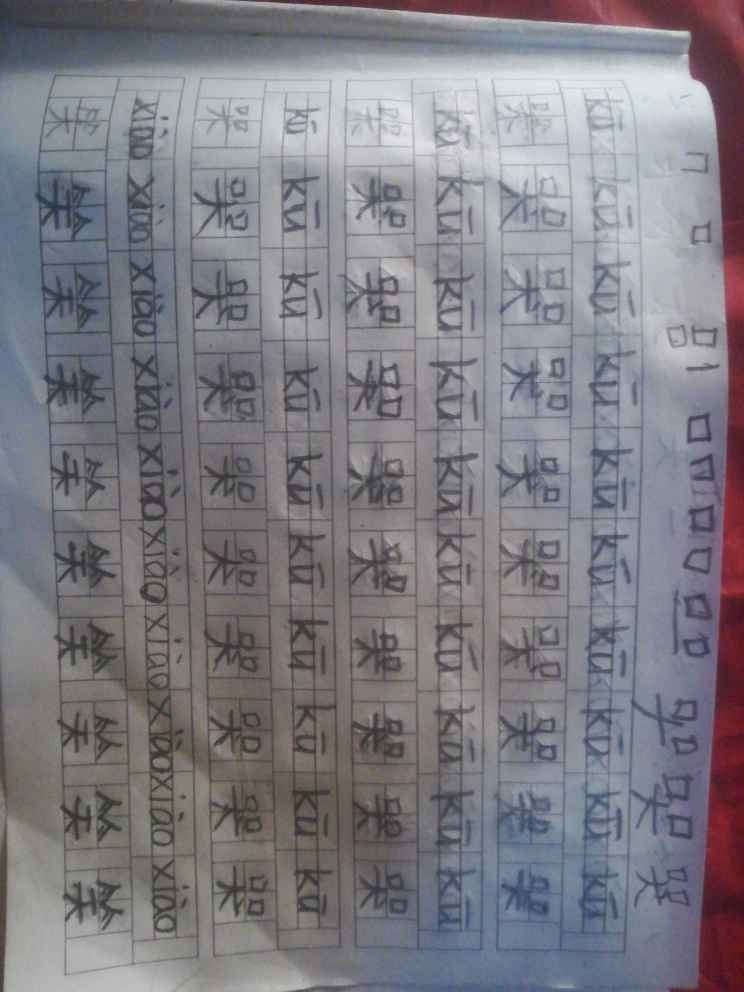 口 口 口口 口 口 口 口 口口 哭 哭 哭
kū kū kū kū kū kū kū kū kū kū
哭 哭 哭 哭 哭 哭 哭 哭 哭 哭
kū kū kū kū kū kū kū kū kū kū
哭 哭 哭 哭 哭 哭 哭 哭 哭 哭
kū kū kū kū kū kū kū kū kū kū
哭 哭 哭 哭 哭 哭 哭 哭 哭 哭
xiào xiào xiào xiào xiào xiào xiào xiào xiào xiào
笑 笑 笑 笑 笑 笑 笑 笑 笑